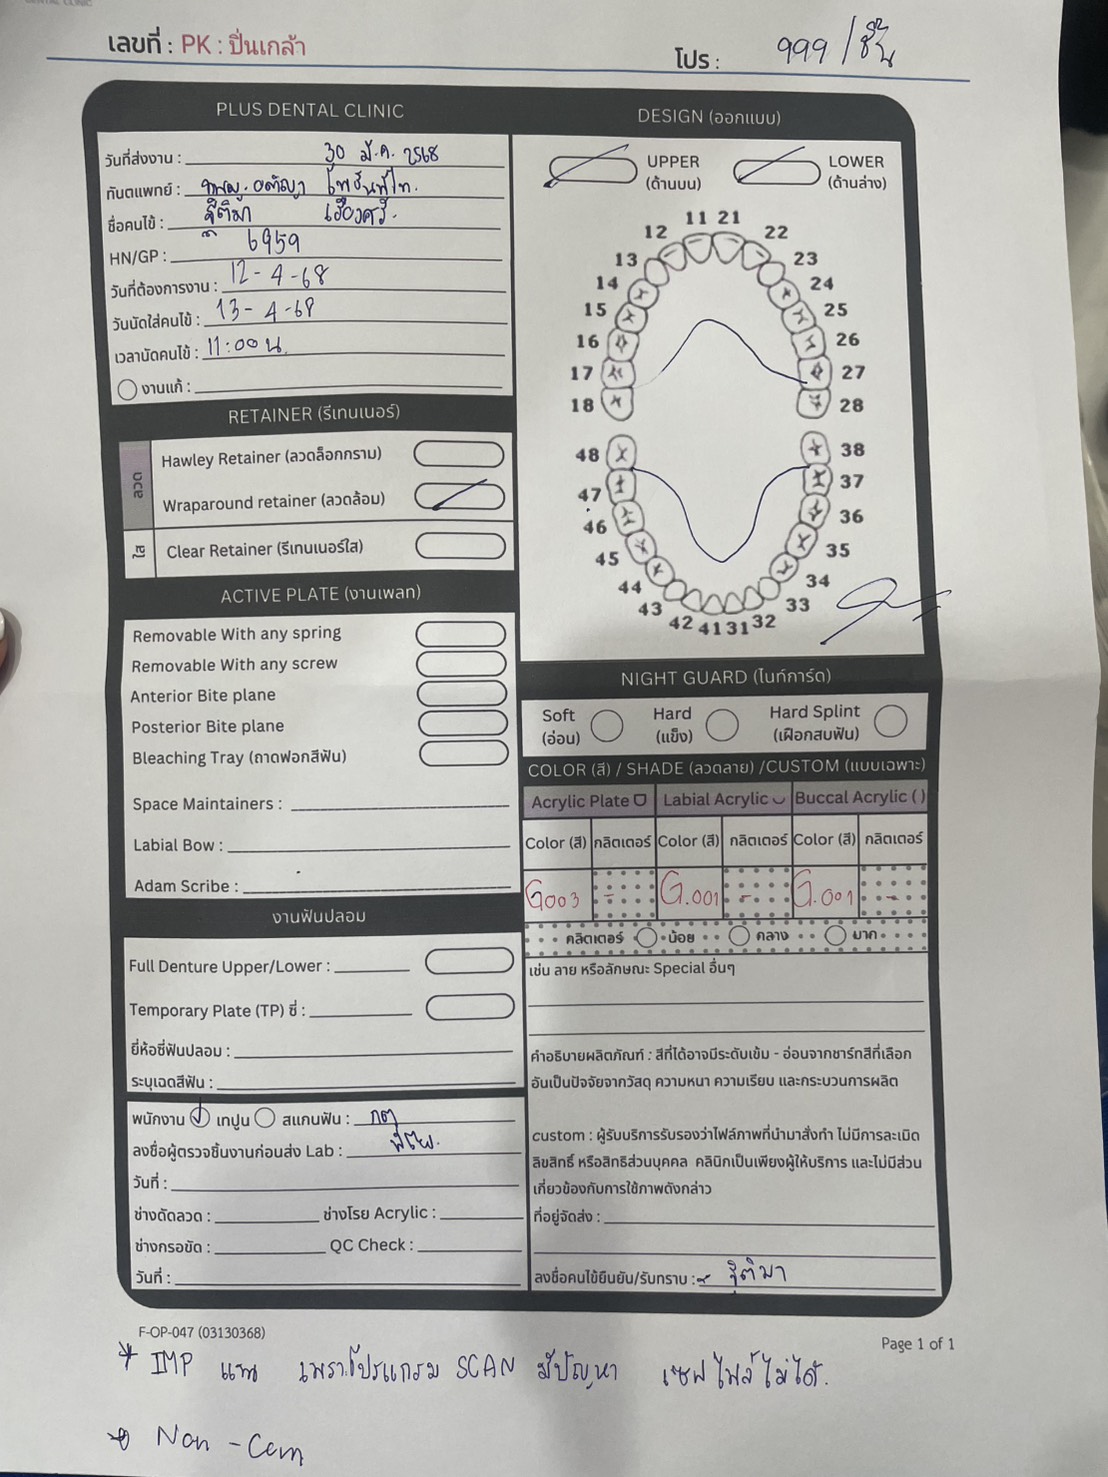 เลขที่ : PK : ปิ่นเกล้า
โปร : 999 / ชิ้น
PLUS DENTAL CLINIC
วันที่ส่งงาน : 30 มี.ค. 2568
ทันตแพทย์ : ทพญ.
ชื่อคนไข้ : ฐิติมา
HN/GP : 6959
วันที่ต้องการงาน : 12-4-68
วันนัดใส่คนไข้ : 13-4-68
เวลานัดคนไข้ : 11:00 น.
งานแก้ :
RETAINER (รีเทนเนอร์)
ลวด
Hawley Retainer (ลวดล็อกกราม)
Wraparound retainer (ลวดล้อม)
ใส
Clear Retainer (รีเทนเนอร์ใส)
ACTIVE PLATE (งานเพลท)
Removable With any spring
Removable With any screw
Anterior Bite plane
Posterior Bite plane
Bleaching Tray (ถาดฟอกสีฟัน)
Space Maintainers :
Labial Bow :
Adam Scribe :
งานฟันปลอม
Full Denture Upper/Lower :
Temporary Plate (TP) ซี่ :
ยี่ห้อซี่ฟันปลอม :
ระบุเฉดสีฟัน :
พนักงาน เทปูน สแกนฟัน :
ลงชื่อผู้ตรวจชิ้นงานก่อนส่ง Lab :
วันที่ :
ช่างดัดลวด : ช่างโรย Acrylic :
ช่างกรอขัด : QC Check :
วันที่ :
DESIGN (ออกแบบ)
UPPER (ด้านบน)
LOWER (ด้านล่าง)
11 21
12 22
13 23
14 24
15 25
16 26
17 27
18 28
48 38
47 37
46 36
45 35
44 34
43 33
42 41 31 32
NIGHT GUARD (ไนท์การ์ด)
Soft (อ่อน)
Hard (แข็ง)
Hard Splint (เฝือกสบฟัน)
COLOR (สี) / SHADE (ลวดลาย) /CUSTOM (แบบเฉพาะ)
Acrylic Plate Labial Acrylic Buccal Acrylic ( )
Color (สี) กลิตเตอร์ Color (สี) กลิตเตอร์ Color (สี) กลิตเตอร์
G003 - G.001 - G.001 -
กลิตเตอร์ น้อย กลาง มาก
เช่น ลาย หรือลักษณะ Special อื่นๆ
คำอธิบายผลิตภัณฑ์ : สีที่ได้อาจมีระดับเข้ม - อ่อนจากชาร์ทสีที่เลือก
อันเป็นปัจจัยจากวัสดุ ความหนา ความเรียบ และกระบวนการผลิต
custom : ผู้รับบริการรับรองว่าไฟล์ภาพที่นำมาสั่งทำ ไม่มีการละเมิด
ลิขสิทธิ์ หรือสิทธิส่วนบุคคล คลินิกเป็นเพียงผู้ให้บริการ และไม่มีส่วน
เกี่ยวข้องกับการใช้ภาพดังกล่าว
ที่อยู่จัดส่ง :
ลงชื่อคนไข้ยืนยัน/รับทราบ : ฐิติมา
F-OP-047 (03130368)
Page 1 of 1
* IMP แทน เพราะโปรแกรม SCAN มีปัญหา เซฟไฟล์ไม่ได้.
Non - Cem